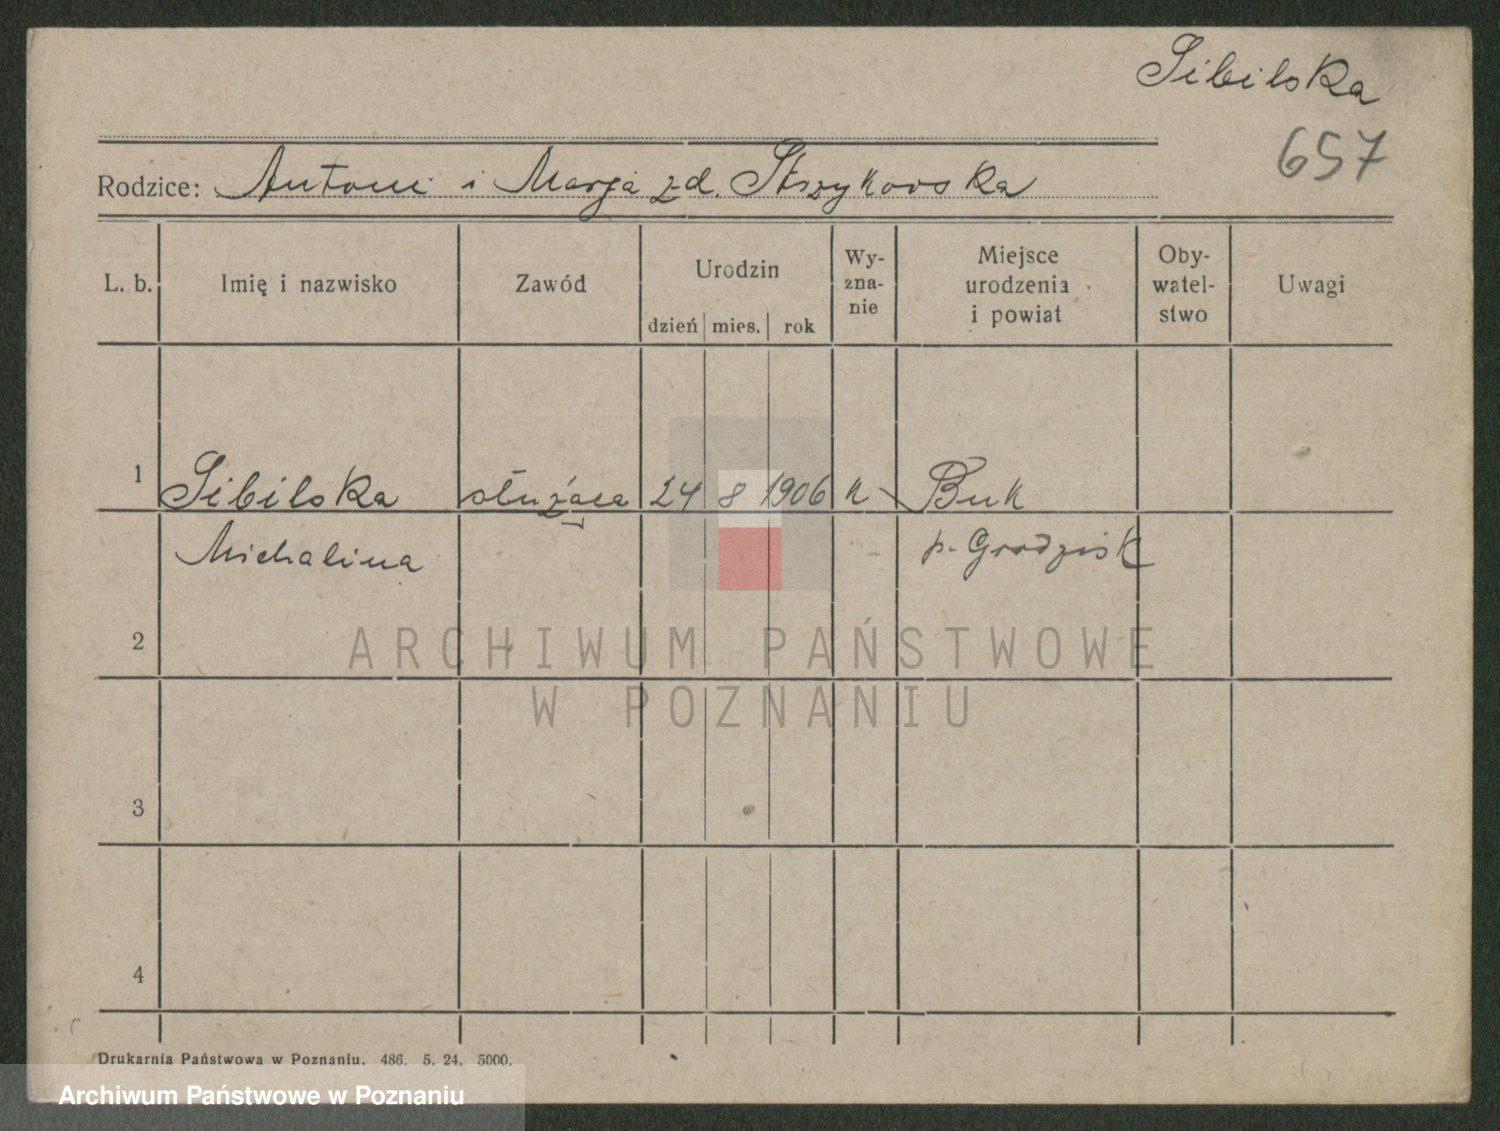 Sibilska
657
Rodzice: Antoni i Marja zd. Strzykowska
L. b. Imię i nazwisko Zawód Urodzin Wy-zna-nie Miejsce urodzenia i powiat Oby-watel-stwo Uwagi
dzień mies. rok
1 Sibilska służąca 24 8 1906 k Buk
Michalina p. Grodzisk
2
ARCHIWUM PAŃSTWOWE
W POZNANIU
3
4
Drukarnia Państwowa w Poznaniu. 486. 5. 24. 5000.
Archiwum Państwowe w Poznaniu